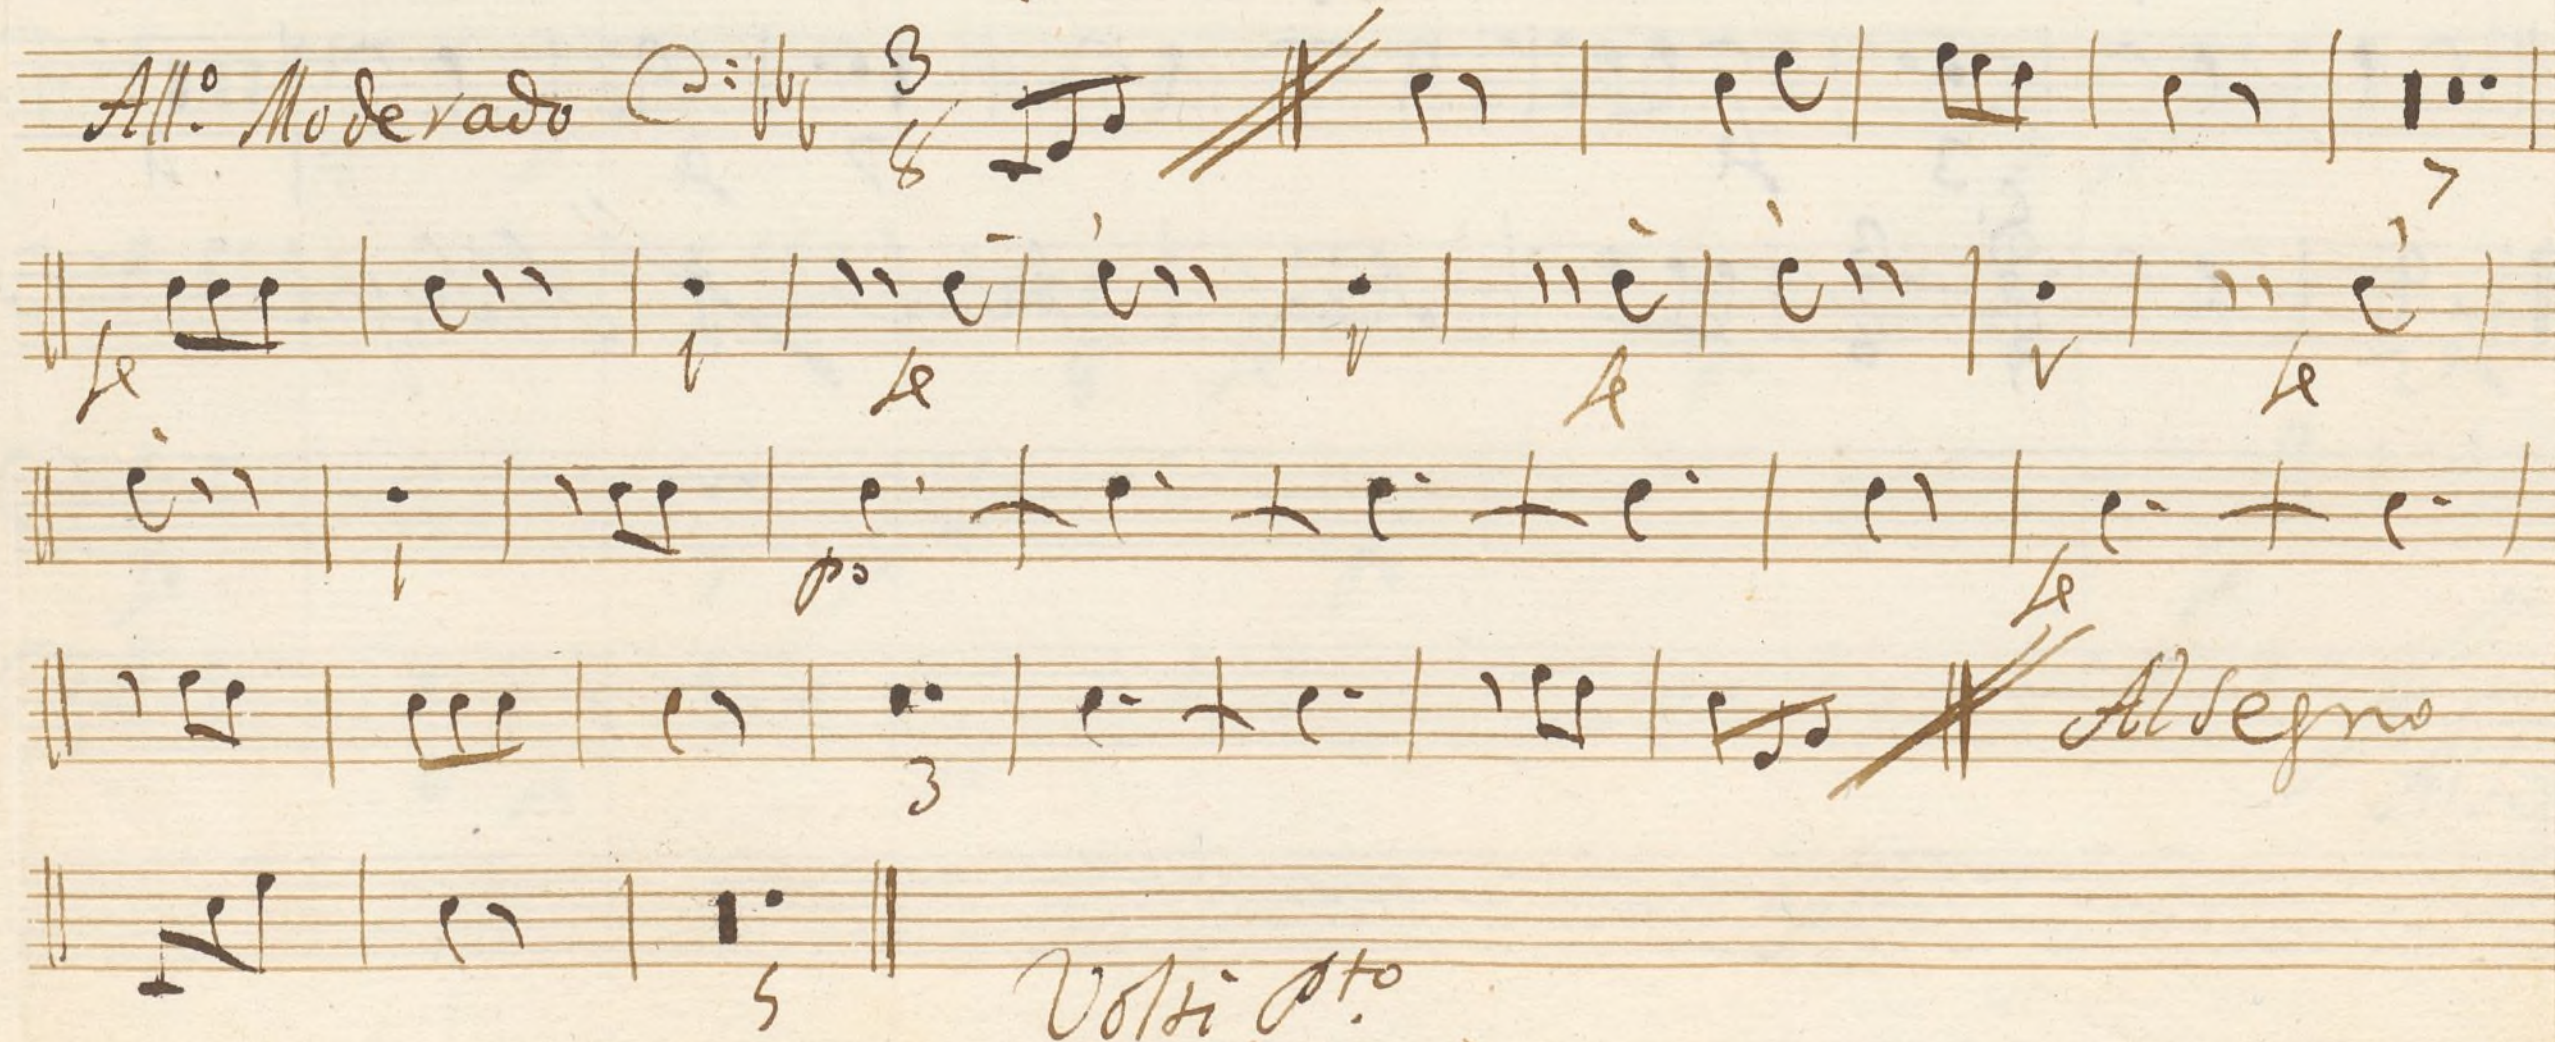 All.º Moderado 3 8
7
fe 1 fe 1 fe 1 fe
1 po fe
3 Al Segno
5 Volti Pto.